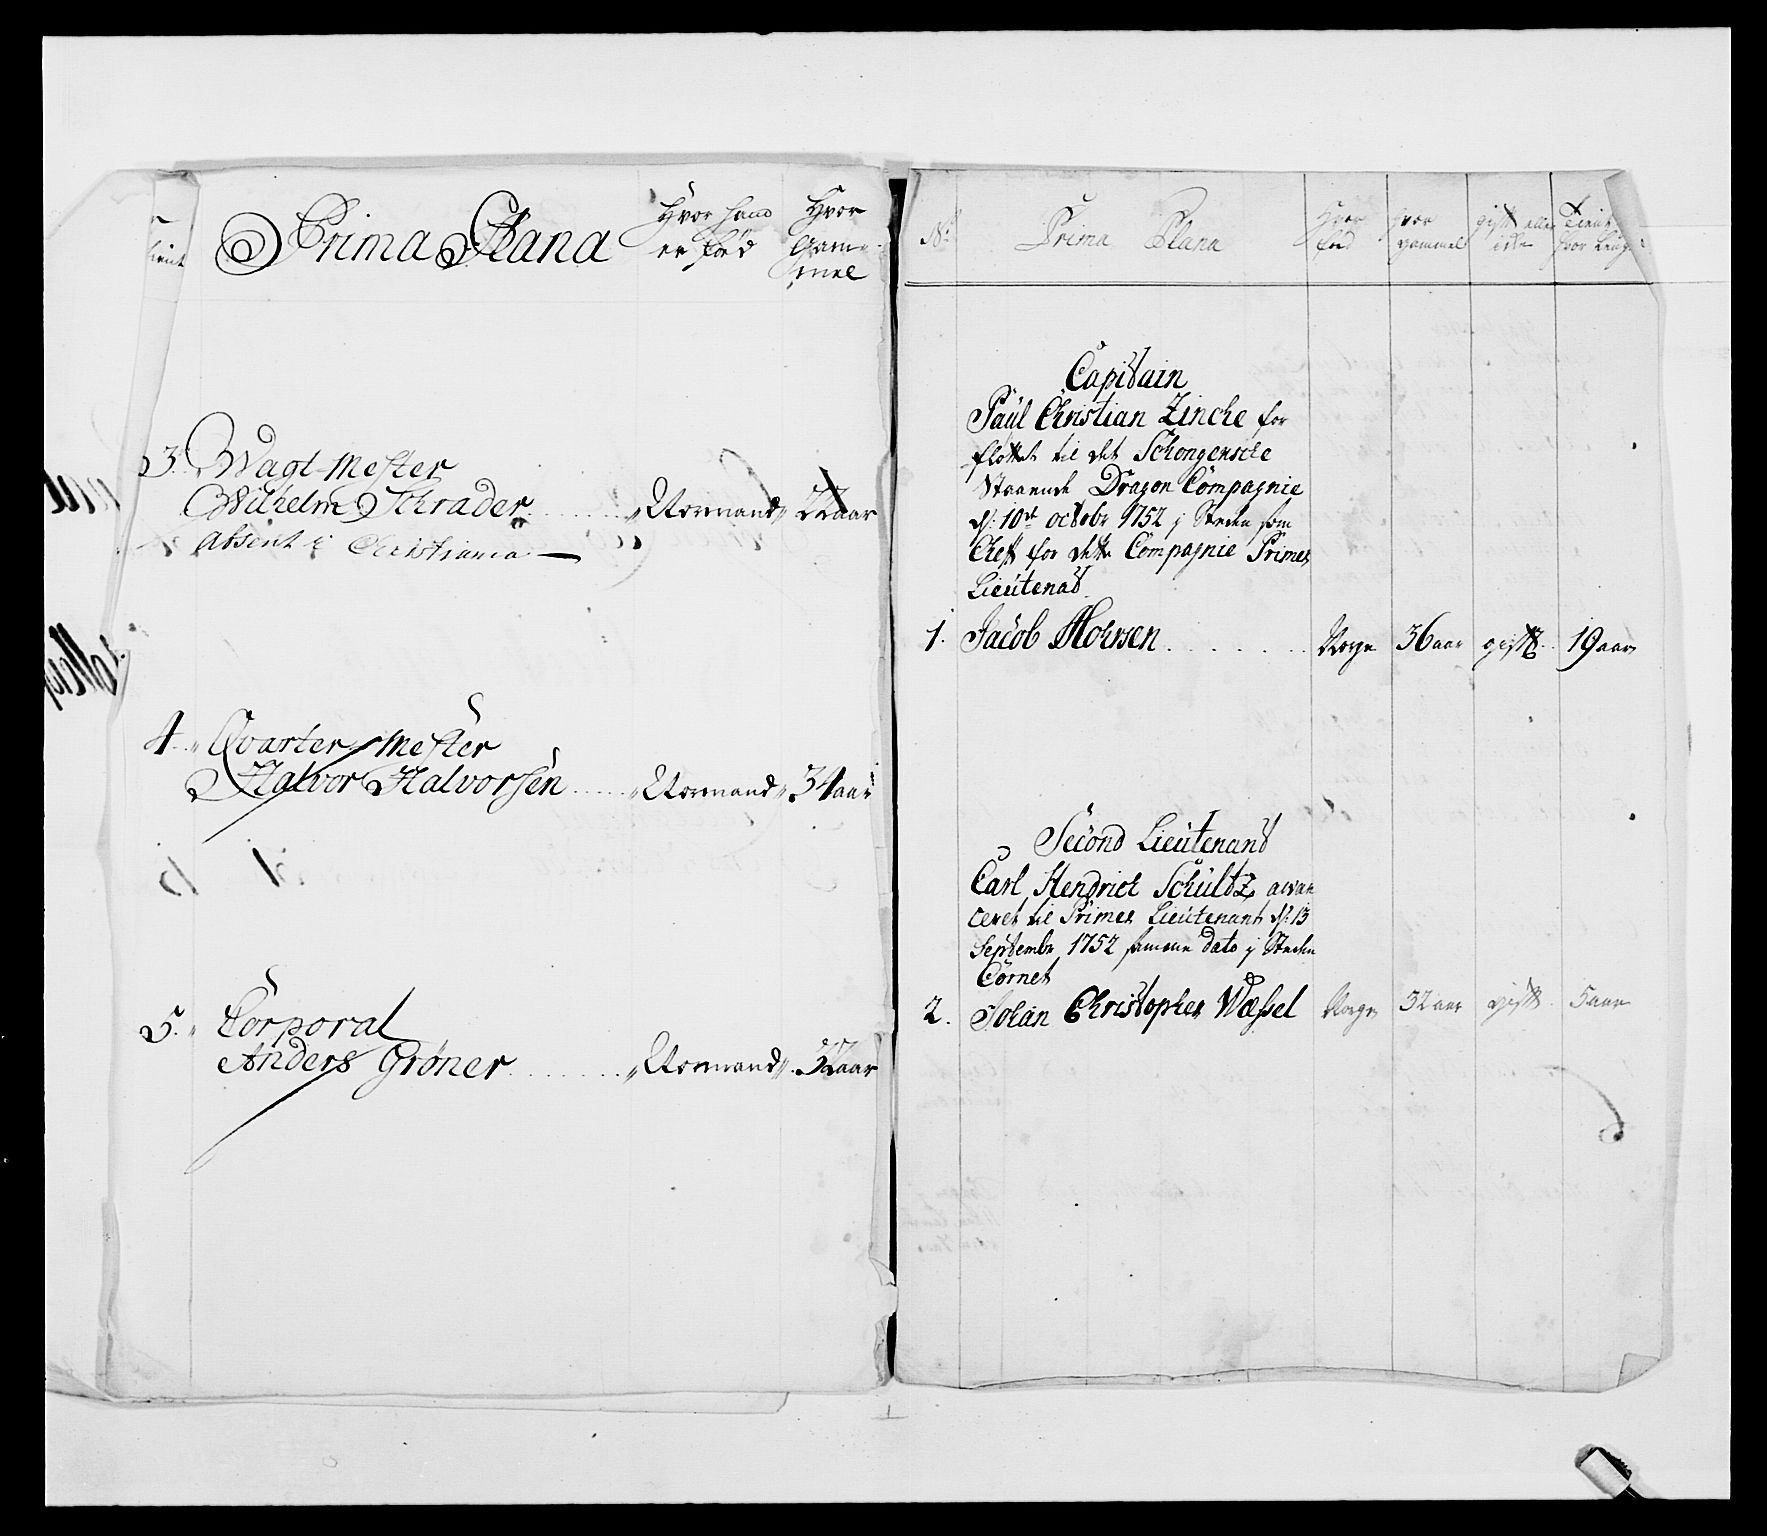 Prima Plana
Hvor hand
er föd
Hvor
Gam-
mel
3. Wagt-Mester
Wilhelm Schrader Normand 22 aar
Absent i Christiania
4. Qvarter Mester
Halvor Halvorsen Normand 34 aar
5. Corporal
Anders Grøner Normand 32 aar
No Prima Plana
Hvor
fød
hvor
gammel
gift eller
icke
Tient
hvor lenge
Capitain
Paul Christian Zinche for
flöttet til det Schongensche
Staaende Dragon Compagnie
d: 10de octobr 1752 j Steden som
Cheff for dette Compagnie Primer
Lieutenad
1. Jacob Mohrsen Norge 36 aar gift 19 aar
Second Lieutenand
Carl Hendrich Schultz avan
ceret til Primer Lieutenant d: 13
Septembr 1752 samme dato j Steden
Cornet
2. Johan Christopher Wessel Norge 32 aar gift 5 aar